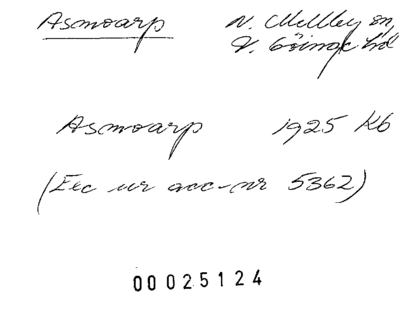 Asmoarp N. Mellby sn,
V. Göinge hd
Asmoarp 1925 Kb
(Exc ur acc-nr 5362)
00025124